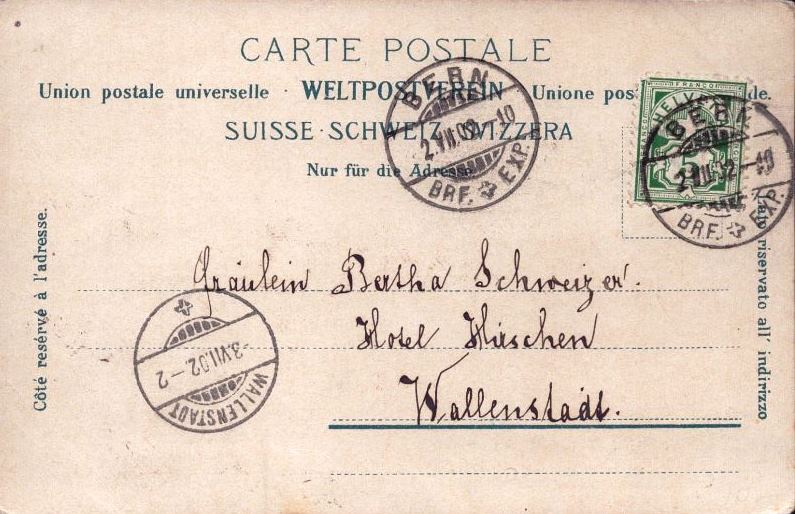 CARTE POSTALE
Union postale universelle · WELTPOSTVEREIN · Unione pos de.
SUISSE · SCHWEIZ · SVIZZERA
Nur für die Adresse
BERN
2.VII.02.-10
BRF. EXP.
FRANCO
HELVETIA
5
BERN
2.VII.02-10
BRF. EXP.
Côté resérvé à l'adresse.
Lato riservato all' indirizzo
Fräulein Bertha Schweizer.
Hotel Hirschen
Wallenstadt.
-3.VII.02.-2
WALLENSTADT